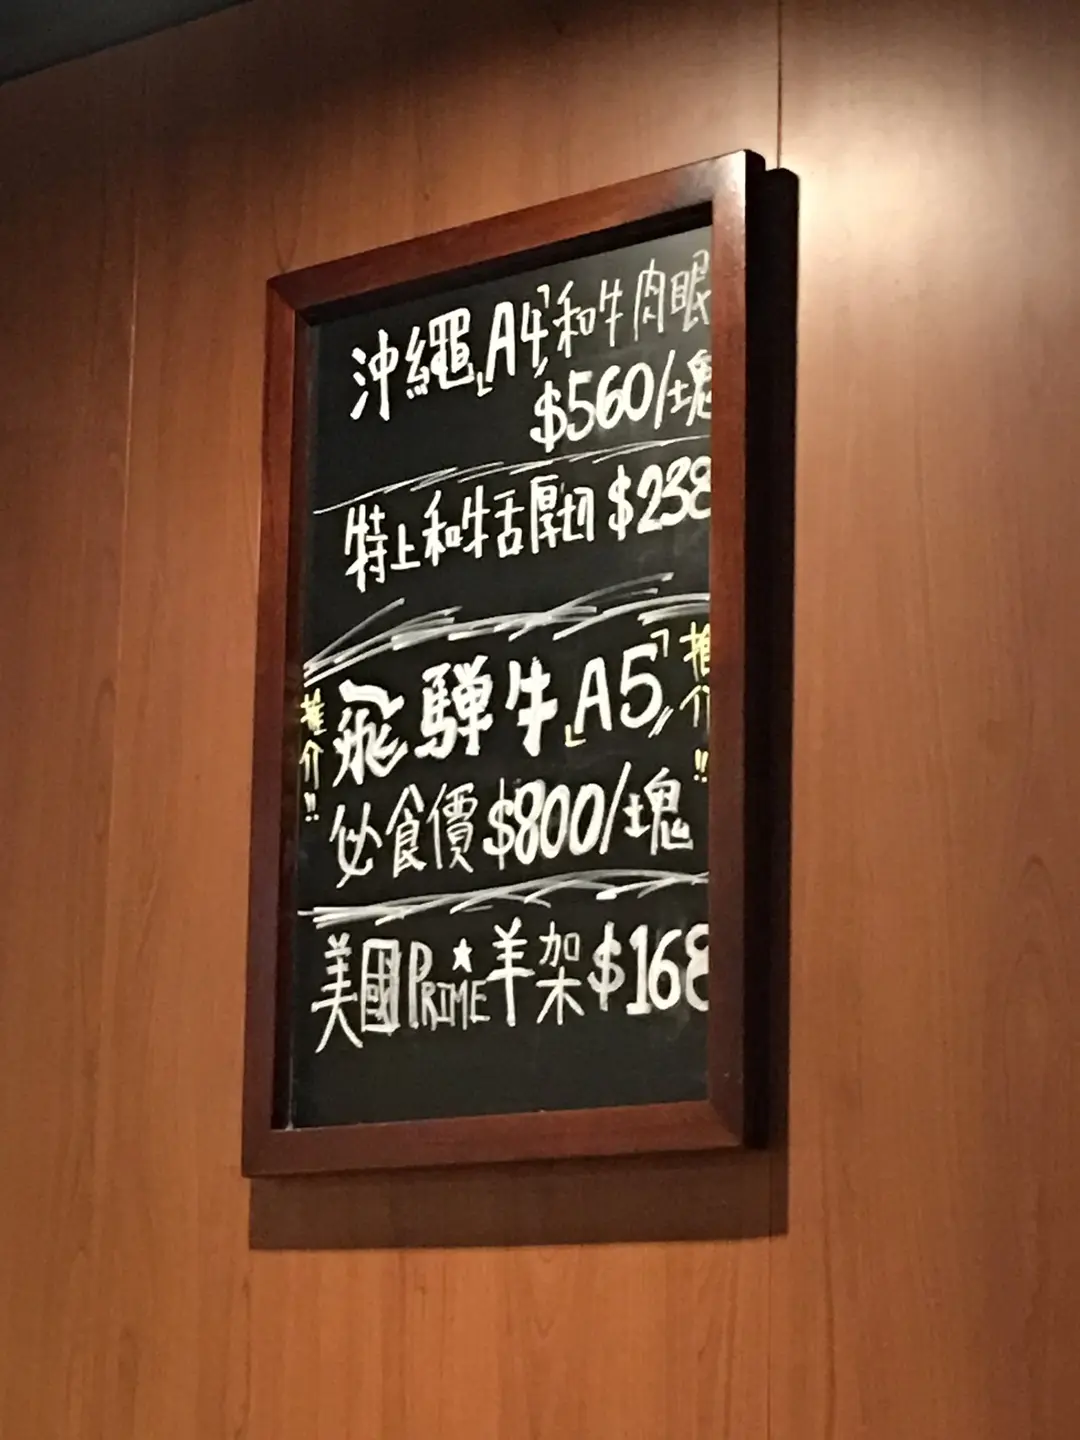 沖繩「A4」和牛肉眼
$560/塊
特上和牛舌厚切 $238
推介!!
飛驒牛「A5」
推介!!
必食價 $800/塊
美國PRIME★羊架 $168